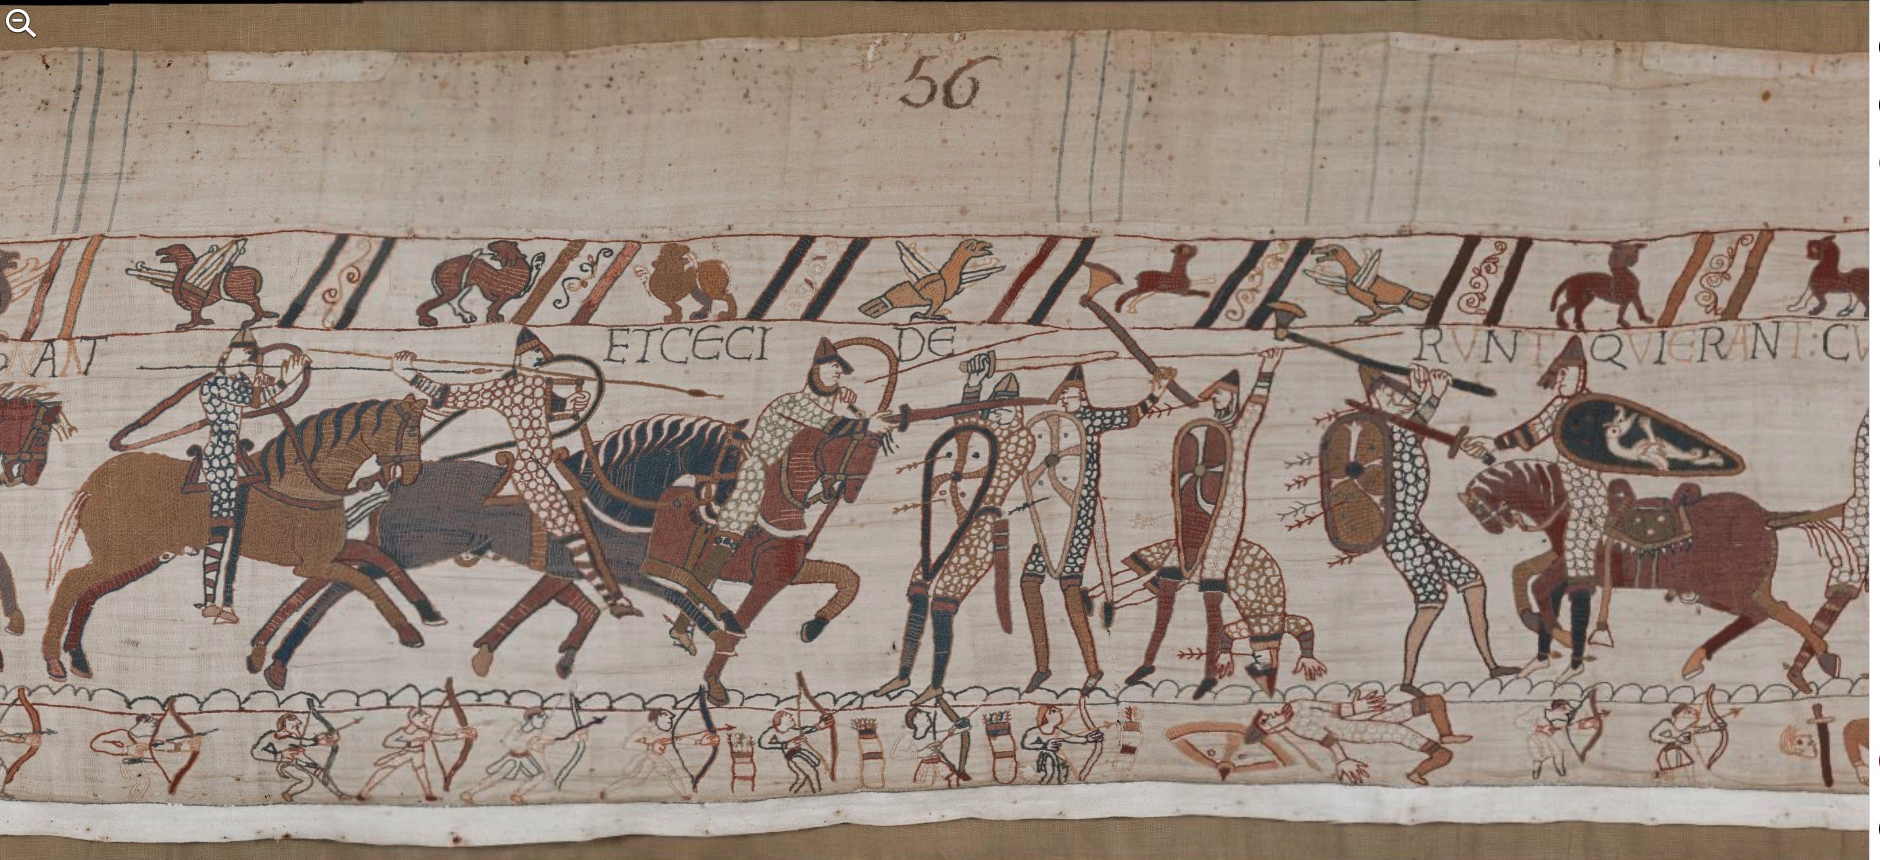 56
RANT ET CECI DE RVNT QVI ERANT : CV